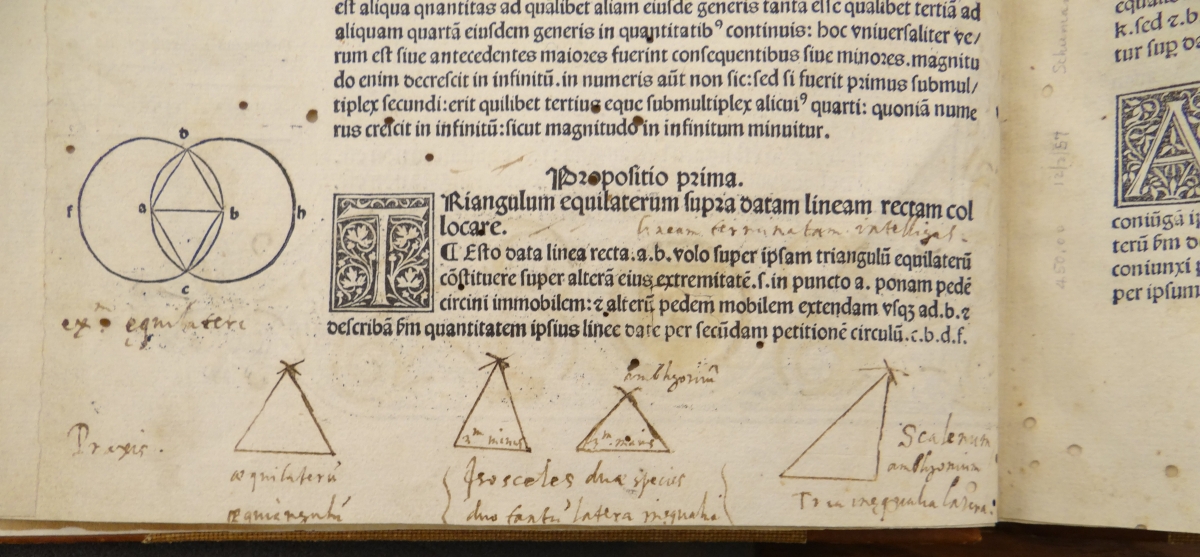 est aliqua quantitas ad qualibet aliam eiusdē generis tanta esse qualibet tertiā ad
aliquam quartā eiusdem generis in quantitatibꝰ continuis: hoc vniuersaliter ve/
rum est siue antecedentes maiores fuerint consequentibus siue minores. magnitu
do enim decrescit in infinitū. in numeris aūt non sic: sed si fuerit primus submul/
tiplex secundi: erit quilibet tertius eque submultiplex alicuiꝰ quarti: quoniā nume
rus crescit in infinitū: sicut magnitudo in infinitum minuitur.
Propositio prima.
TRiangulum equilaterum supra datam lineam rectam col
locare.
lineam terminatam intelligas.
¶ Esto data linea recta .a.b. volo super ipsam triangulū equilaterū
cōstituere super alterā eius extremitatē .s. in puncto a. ponam pedē
circini immobilem: ⁊ alterū pedem mobilem extendam vsqꝫ ad .b. ⁊
describā ẜm quantitatem ipsius linee date per secūdam petitionē circulū .c.b.d.f.
d
f a b h
c
exm equilateri
Praxis.
æquilaterū
æquiangulū
3m minus
3m maius
amblygoniū
Isosceles duæ species
duo tantū latera inequalia
Scalenum
amblygonium
Tria inæqualia latera.
equali
k. sed ⁊.b
tur sup da
A
coniūga
terū ẜm d
coniunxi
per ipsum
Schuman
12/2/57
450.00